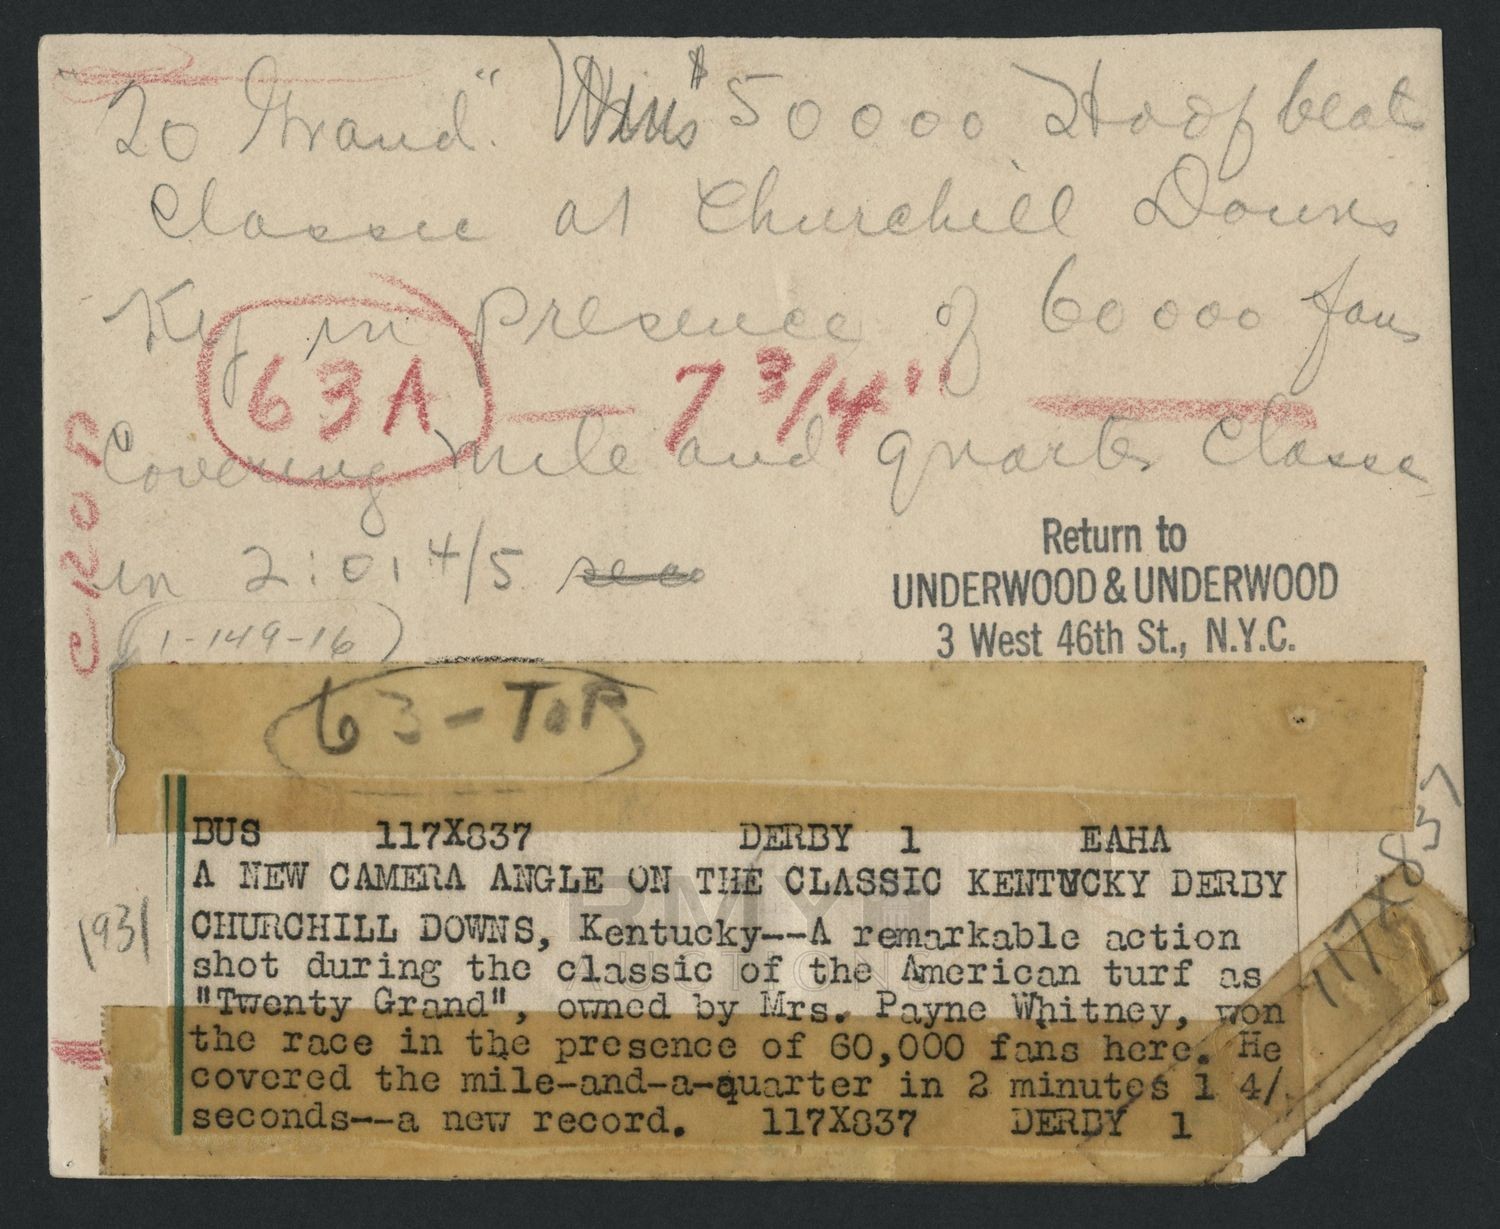 "20 Grand" Wins $50000 Hoof beat
Classic at Churchill Downs
Ky in presence of 60000 fans
63A — 7 3/4"
Covering mile and quarter Classic
in 2:01 4/5 secs
CROP
(1-149-16)
Return to
UNDERWOOD & UNDERWOOD
3 West 46th St., N.Y.C.
63-TOP
BUS 117X837 DERBY 1 EAHA
A NEW CAMERA ANGLE ON THE CLASSIC KENTUCKY DERBY
CHURCHILL DOWNS, Kentucky--A remarkable action
shot during the classic of the American turf as
"Twenty Grand", owned by Mrs. Payne Whitney, won
the race in the presence of 60,000 fans here. He
covered the mile-and-a-quarter in 2 minutes 1 4/
seconds--a new record. 117X837 DERBY 1
1931
117X837